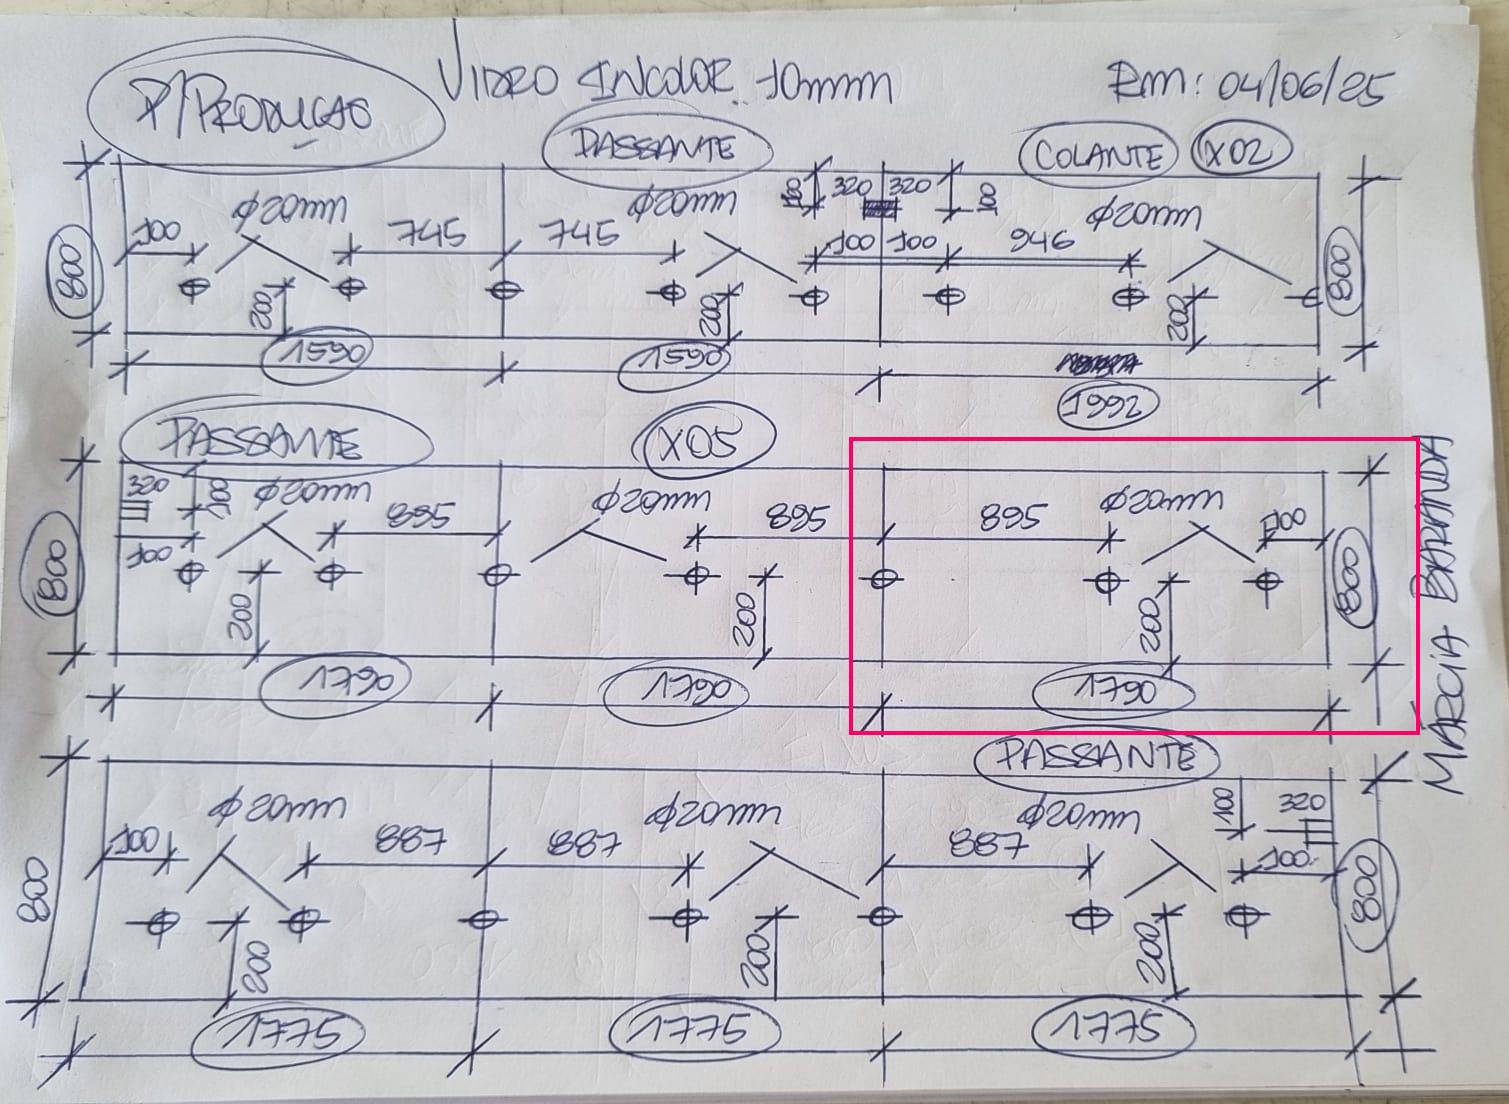 P/PRODUÇÃO
VIDRO INCOLOR 10mm
RM: 04/06/25
PASSANTE
COLANTE
X02
800
100
φ20mm
745
745
φ20mm
100
320
320
100
100
100
946
φ20mm
800
200
200
200
1590
1590
1992
PASSANTE
X05
800
320
100
100
φ20mm
895
φ20mm
895
895
φ20mm
100
800
200
200
200
1790
1790
1790
MÁRCIA BARANDA
PASSANTE
800
100
φ20mm
887
887
φ20mm
887
φ20mm
100
320
100
800
200
200
200
1775
1775
1775